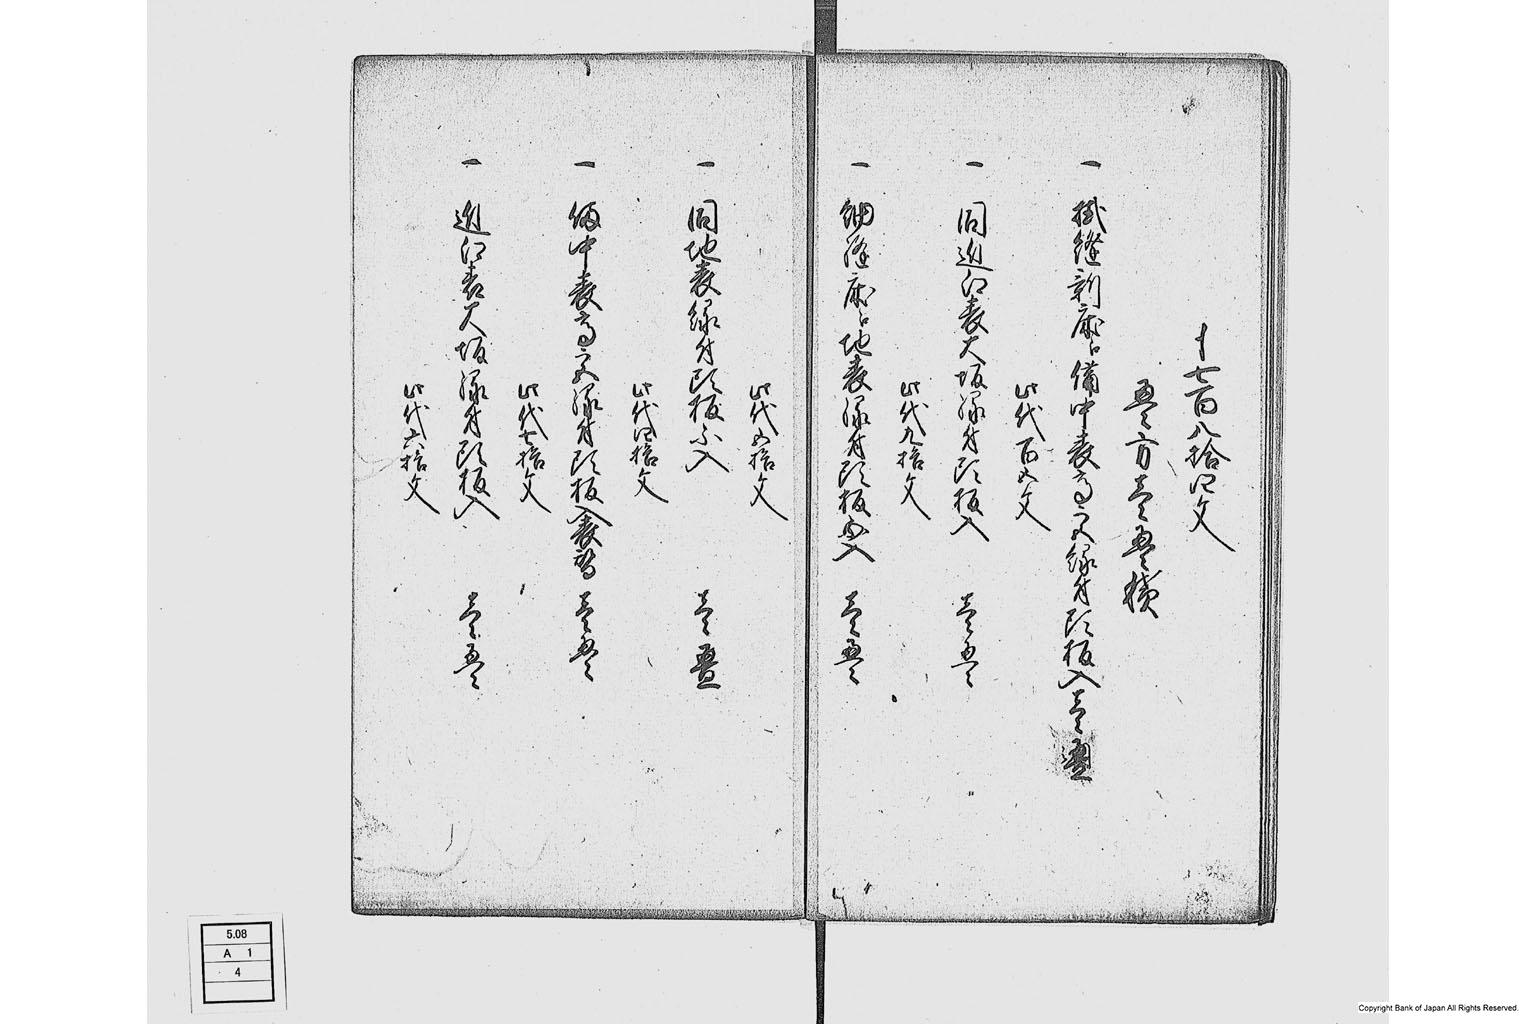 〆七百八拾四文
畳方壱畳積
一 掛縫新床ニ備中表高宮縁付頭板入 壱畳
此代百五文
一 同近江表大坂縁付頭板入 壱畳
此代九拾文
一 細縫床ニ地表縁付頭板不入 壱畳
此代五拾文
一 同地表縁付頭板不入 壱畳
此代四拾文
一 備中表高宮縁付頭板入表替 壱畳
此代七拾文
一 近江表大坂縁付頭板入 壱畳
此代六拾文
5.08
A 1
4
Copyright Bank of Japan All Rights Reserved.